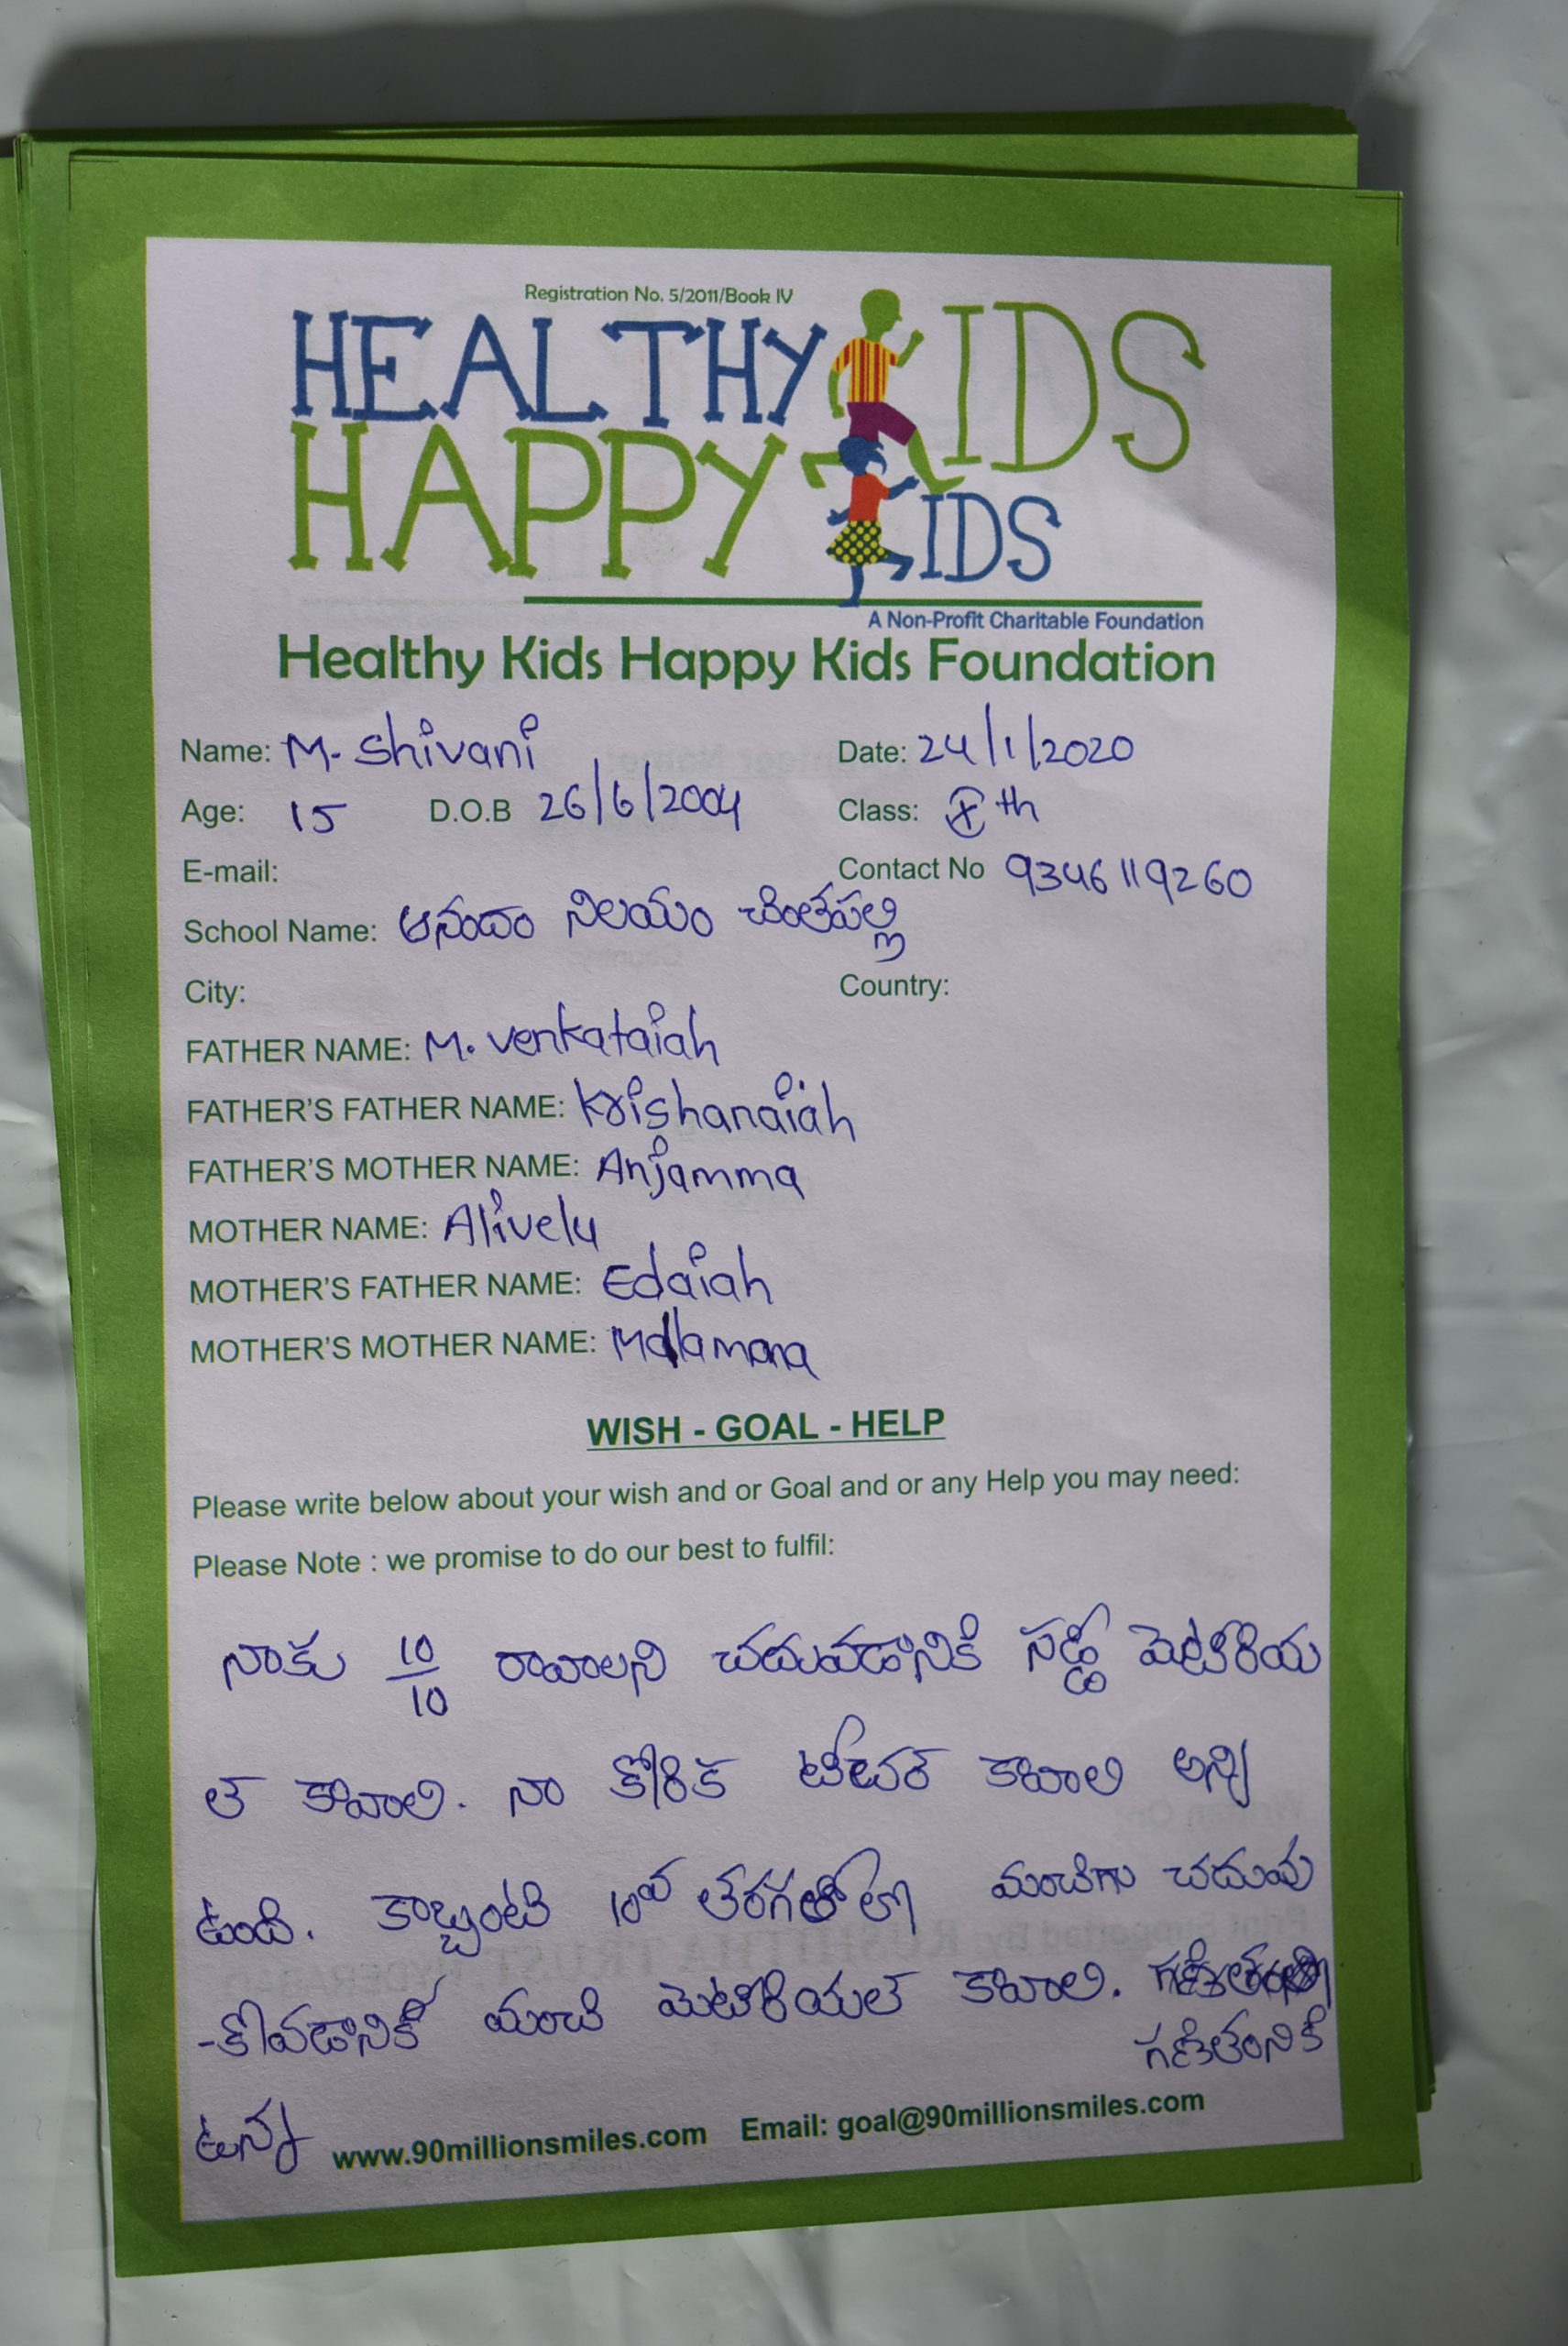 Registration No. 5/2011/Book IV
HEALTHY KIDS
HAPPY KIDS
A Non-Profit Charitable Foundation
Healthy Kids Happy Kids Foundation
Name: M. Shivani Date: 24/1/2020
Age: 15 D.O.B 26/6/2004 Class: Xth
E-mail: Contact No 9346119260
School Name: ఆనందం నిలయం చింతపల్లి
City: Country:
FATHER NAME: M. Venkataiah
FATHER'S FATHER NAME: Krishanaiah
FATHER'S MOTHER NAME: Anjamma
MOTHER NAME: Alivelu
MOTHER'S FATHER NAME: Edaiah
MOTHER'S MOTHER NAME: Mallamma
WISH - GOAL - HELP
Please write below about your wish and or Goal and or any Help you may need:
Please Note : we promise to do our best to fulfil:
నాకు 10/10 రావాలని చదువడానికి సడ్డీ మెటీరియ
ల్ కావాలి. నా కోరిక టీచర్ కావాలి అన్ని
ఉంది. కాబ్బంటి 10వ తరగతిలో మంచిగు చదువు
-కోవడానికి మంచి మెటీరియల్ కావాలి.
గణితంనికి
ఉన్న www.90millionsmiles.com Email: goal@90millionsmiles.com